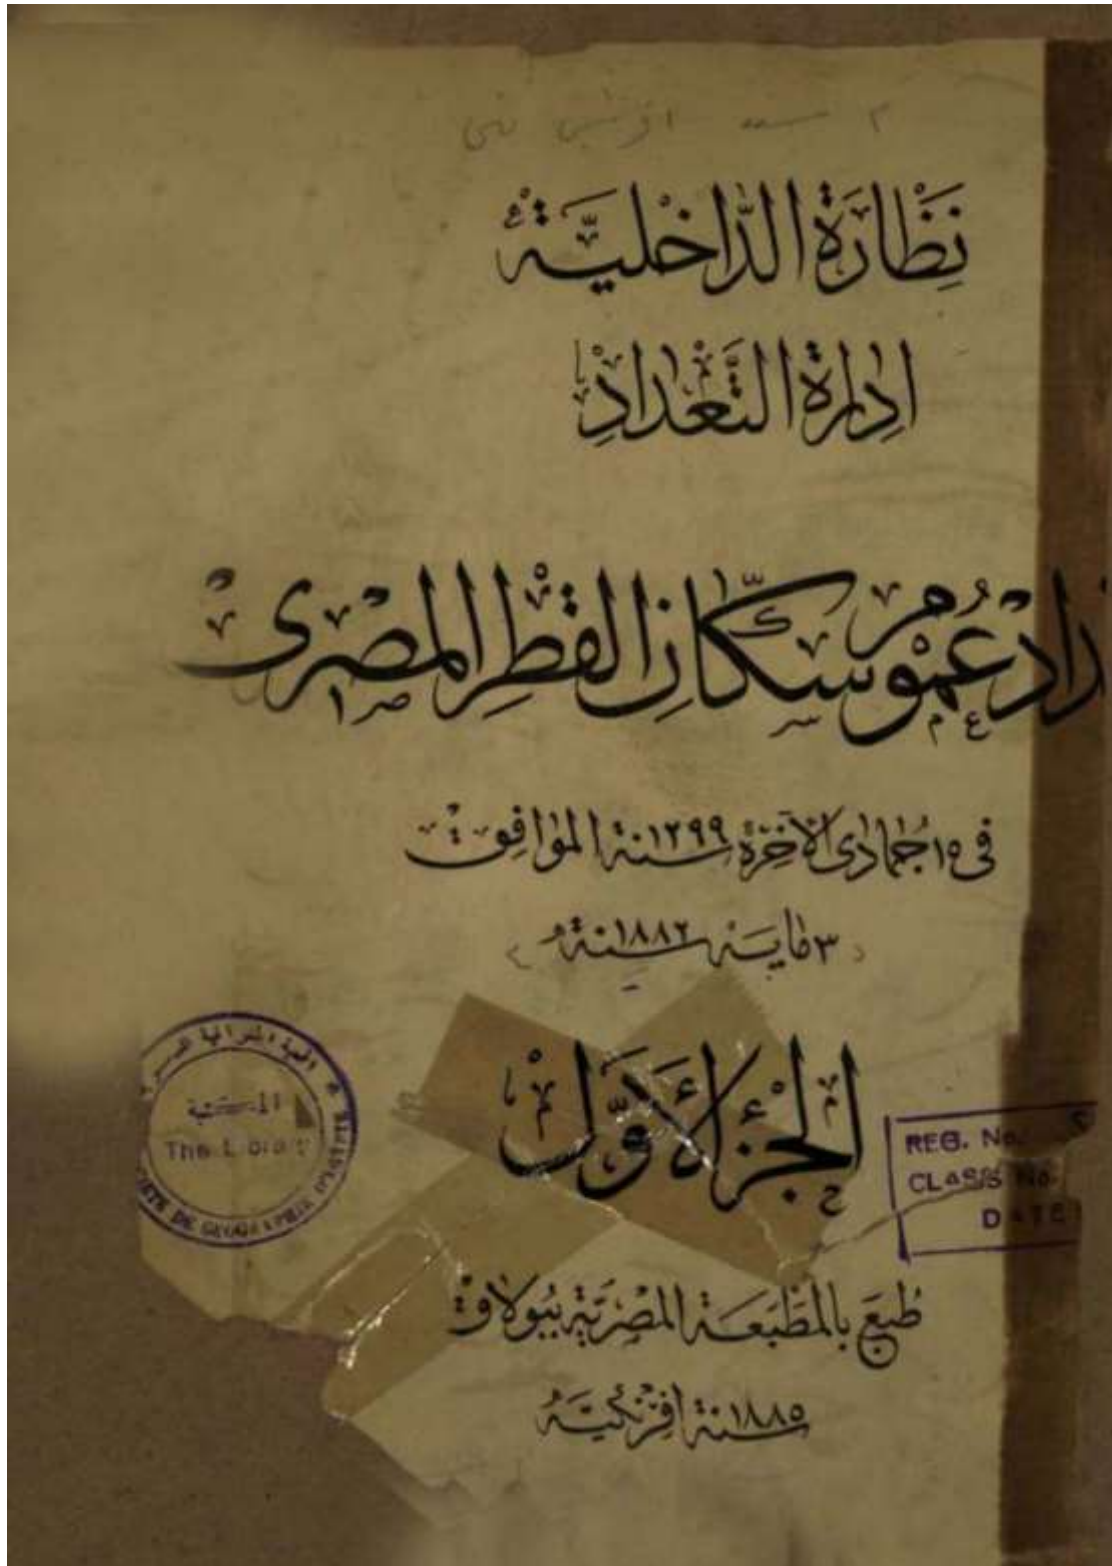 نِظَارَةُ الدَّاخْلِيَّةْ
ادِارَة التَّعْدادْ
داد عُمُوم سكَّان القُطْرِ المصْرى
فى ١٥ جُمادى الآخَرَة سنة ١٢٩٩ الموَافِقْ
٣ مايَه سنة ١٨٨٢
الجُزْءُ الأَوَّلْ
المكتبة
The Library
REG. No.
CLASS No.
DATE
طُبِعَ بالمَطْبَعَة المصْرِيَّة بِبُولاقْ
سنة ١٨٨٥ افْرنكيَّه